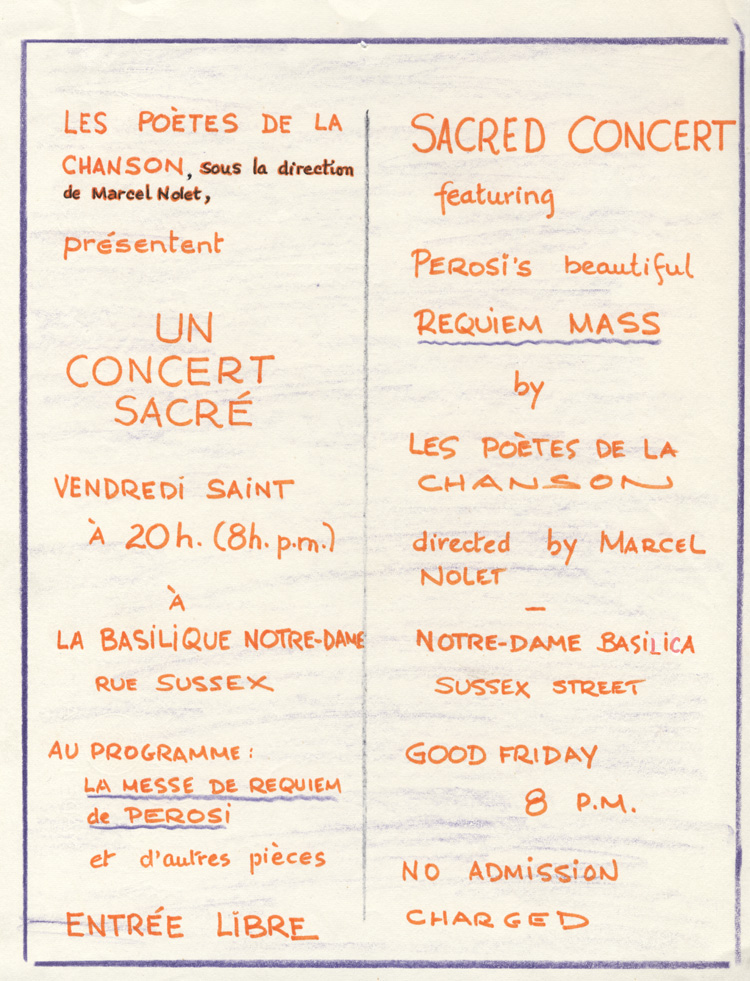 LES POÈTES DE LA
CHANSON, sous la direction
de Marcel Nolet,
présentent
UN
CONCERT
SACRÉ
VENDREDI SAINT
À 20h. (8h. p.m.)
À
LA BASILIQUE NOTRE-DAME
RUE SUSSEX
AU PROGRAMME:
LA MESSE DE REQUIEM
de PEROSI
et d'autres pièces
ENTRÉE LIBRE
SACRED CONCERT
featuring
PEROSI'S beautiful
REQUIEM MASS
by
LES POÈTES DE LA
CHANSON
directed by MARCEL
NOLET
—
NOTRE-DAME BASILICA
SUSSEX STREET
GOOD FRIDAY
8 P.M.
NO ADMISSION
CHARGED